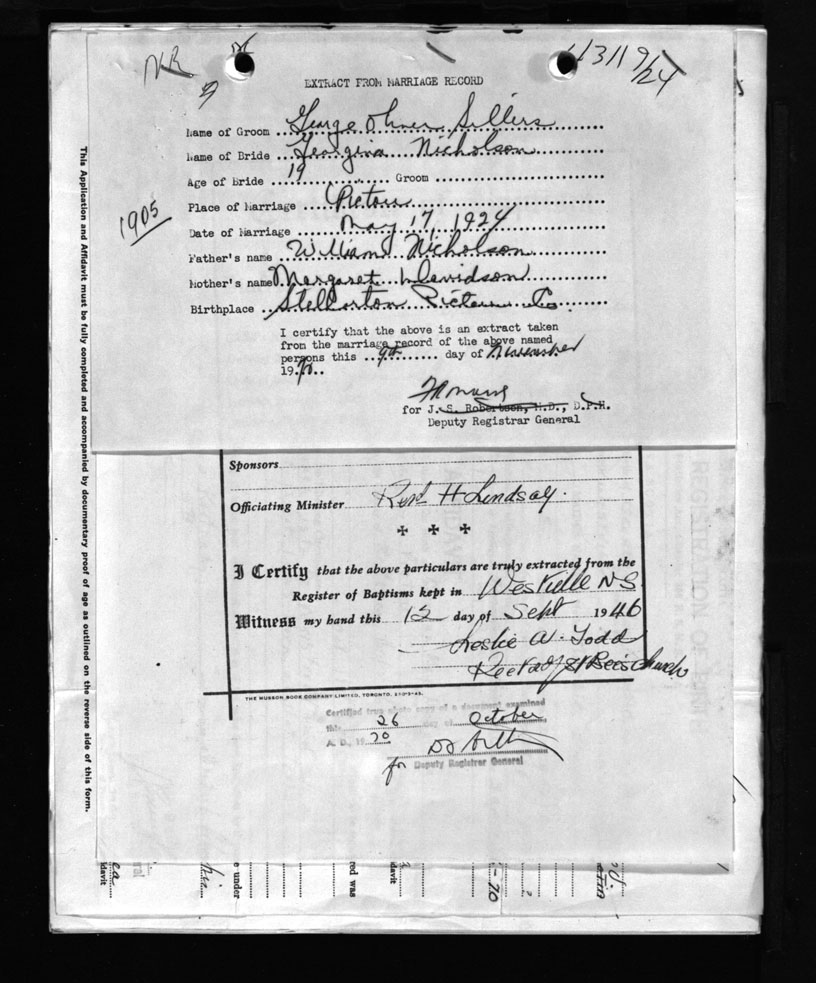 NR
11311 9/24
EXTRACT FROM MARRIAGE RECORD
Name of Groom George Sillers
Name of Bride Georgina Nicholson
Age of Bride 19 Groom
Place of Marriage Pictou
1905
Date of Marriage May 17, 1924
Father's name William Nicholson
Mother's name Margaret Davidson
Birthplace Stellarton Pictou Co.
I certify that the above is an extract taken
from the marriage record of the above named
persons this 9th day of November
1970
for J. S. Robertson, M.D., D.P.H.
Deputy Registrar General
This Application and Affidavit must be fully completed and accompanied by documentary proof of age as outlined on the reverse side of this form.
Sponsors
Officiating Minister Revd H Lindsay.
I Certify that the above particulars are truly extracted from the
Register of Baptisms kept in Westville N S
Witness my hand this 12 day of Sept 1946
Leslie A. Todd
Rector of St Bee's Church
THE MUSSON BOOK COMPANY LIMITED, TORONTO.
Certified true photo copy of a document examined
this 26 day of October
A. D., 19 70
for Deputy Registrar General
davit
e under
red was
davit
-70